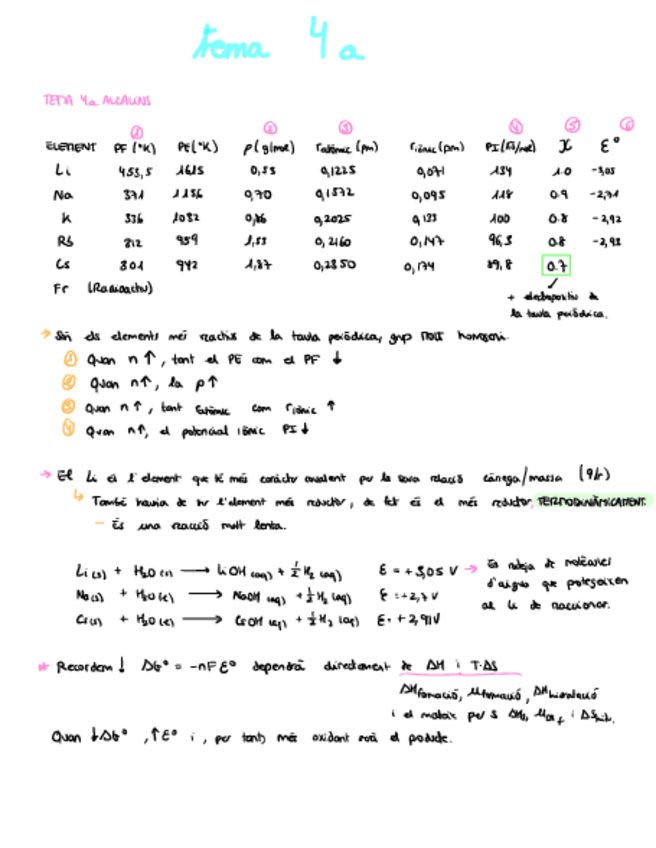 tema 4a
TEMA 4a ALCALINS
① ② ③ ④ ⑤ ⑥
ELEMENT PF (°K) PE(°K) ρ(g/mol) ratòmic (pm) riònic (pm) PI(KJ/mol) X Ɛ°
Li 453,5 1615 0,53 0,1225 0,071 134 1.0 -3,05
Na 371 1156 0,70 0,1572 0,095 118 0.9 -2,71
K 336 1032 0,86 0,2025 0,133 100 0.8 -2,92
Rb 312 959 1,53 0,2160 0,147 96,3 0.8 -2,98
Cs 301 942 1,87 0,2350 0,174 89,8 0.7
Fr (Radioactiu)
+ electropositiu de
la taula periòdica.
→ Són els elements més reactius de la taula periòdica, grup molt homogeni.
① Quan n ↑, tant el PE com el PF ↓
② Quan n↑, la ρ↑
③ Quan n ↑, tant ratòmic com riònic ↑
④ Quan n↑, el potencial iònic PI↓
→ El Li és l'element que té més caràcter covalent per la seva relació càrrega/massa (q/r)
↳ També hauria de ser l'element més reductor, de fet és el més reductor TERMODINÀMICAMENT.
- És una reacció molt lenta.
Li(s) + H₂O(l) ⟶ LiOH(aq) + ½H₂(aq) Ɛ = +3,05 V → Es rodeja de molècules
d'aigua que protegeixen
al Li de reaccionar.
Na(s) + H₂O(l) ⟶ NaOH(aq) + ½H₂(aq) Ɛ = +2,7 V
Cs(s) + H₂O(l) ⟶ CsOH(aq) + ½H₂(aq) Ɛ = +2,91V
* Recordem! ΔG° = -nFƐ° dependrà directament de ΔH i T·ΔS
ΔHformació, ΔHhidratació
i el mateix per S
Quan ↓ΔG°, ↑Ɛ° i, per tant, més oxidant serà el